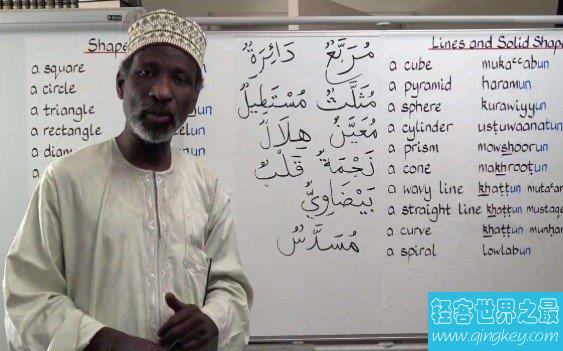 Shape
a square
a circle
a triangle
a rectangle
a diam
a
مُرَبَّعٌ دَائِرَةٌ
مُثَلَّثٌ مُسْتَطِيلٌ
مُعَيَّنٌ هِلَالٌ
نَجْمَةٌ قَلْبٌ
بَيْضَاوِيٌّ
مُسَدَّسٌ
Lines and Solid Shape
a cube mukaccabun
a pyramid haramun
a sphere kurawiyyun
a cylinder usṭuwaanatun
a prism mowshoorun
a cone makhrooṭun
a wavy line khaṭṭun mutafar
a straight line khaṭṭun mustaqe
a curve khaṭṭun munḥan
a spiral lowlabun
轻客世界之最
www.qingkey.com